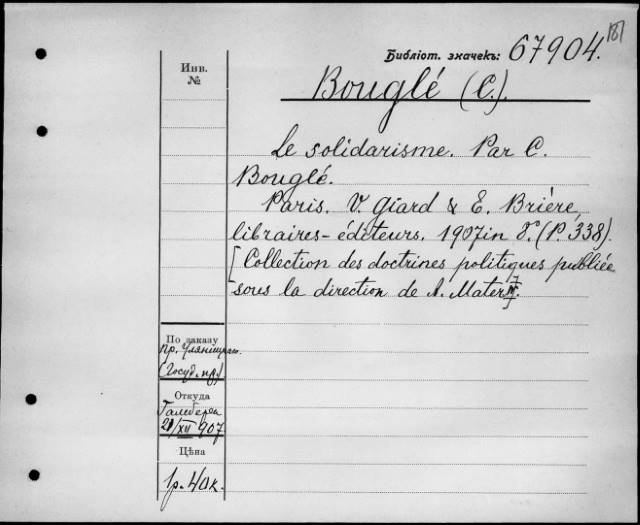 181
Библіот. значекъ: 67904.
Инв.
№
Bouglé (C.).
Le solidarisme. Par C.
Bouglé.
Paris. V. Giard & E. Brière,
libraires-éditeurs. 1907 in 8°. (P. 338).
[Collection des doctrines politiques publiée
sous la direction de A. Mater. IV].
По заказу
пр.
(Госуд. пр.)
Откуда
21/XII 907
Цѣна
1р. 40к.